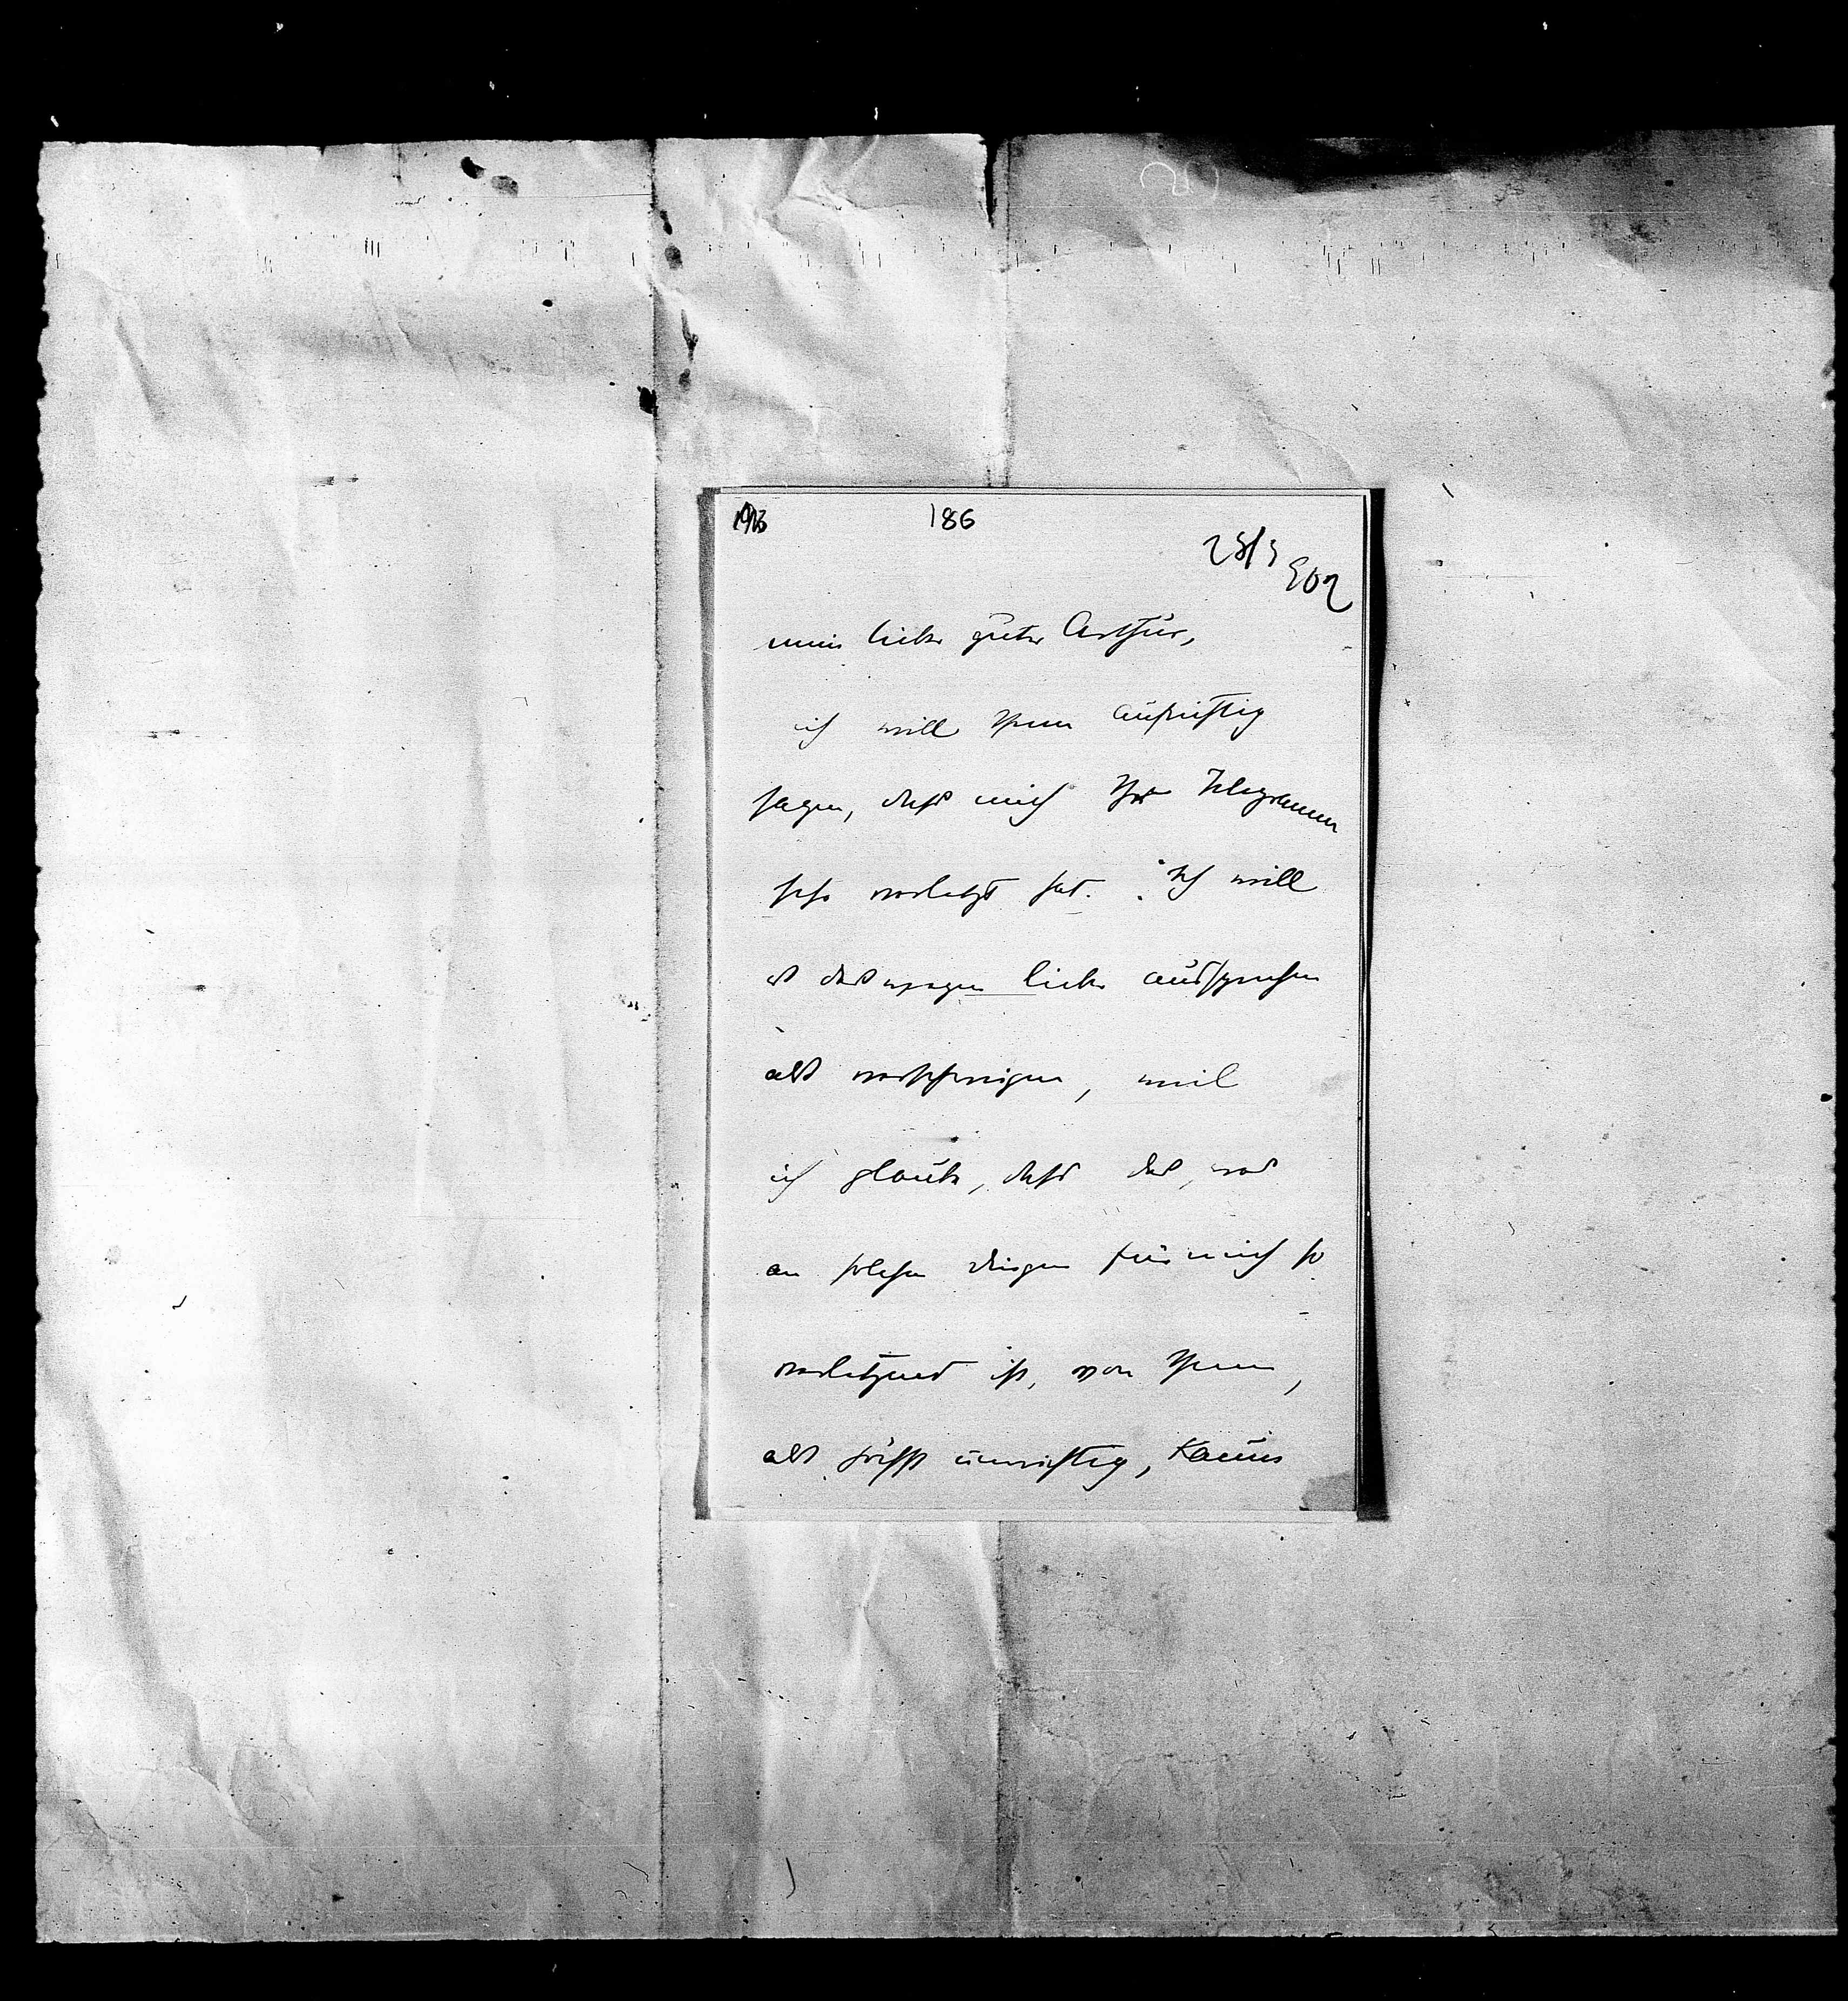 1913
186
28/3
902
mein lieber guter Arthur,
ich will Ihnen aufrichtig
sagen, dass mich Ihr Telegramm
sehr verletzt hat. Ich will
es deswegen lieber aussprechen
als verschweigen, weil
ich glaube, dass das, was
an solchen Dingen für mich so
verletzend ist, von Ihnen,
als höchst unwichtig, kaum